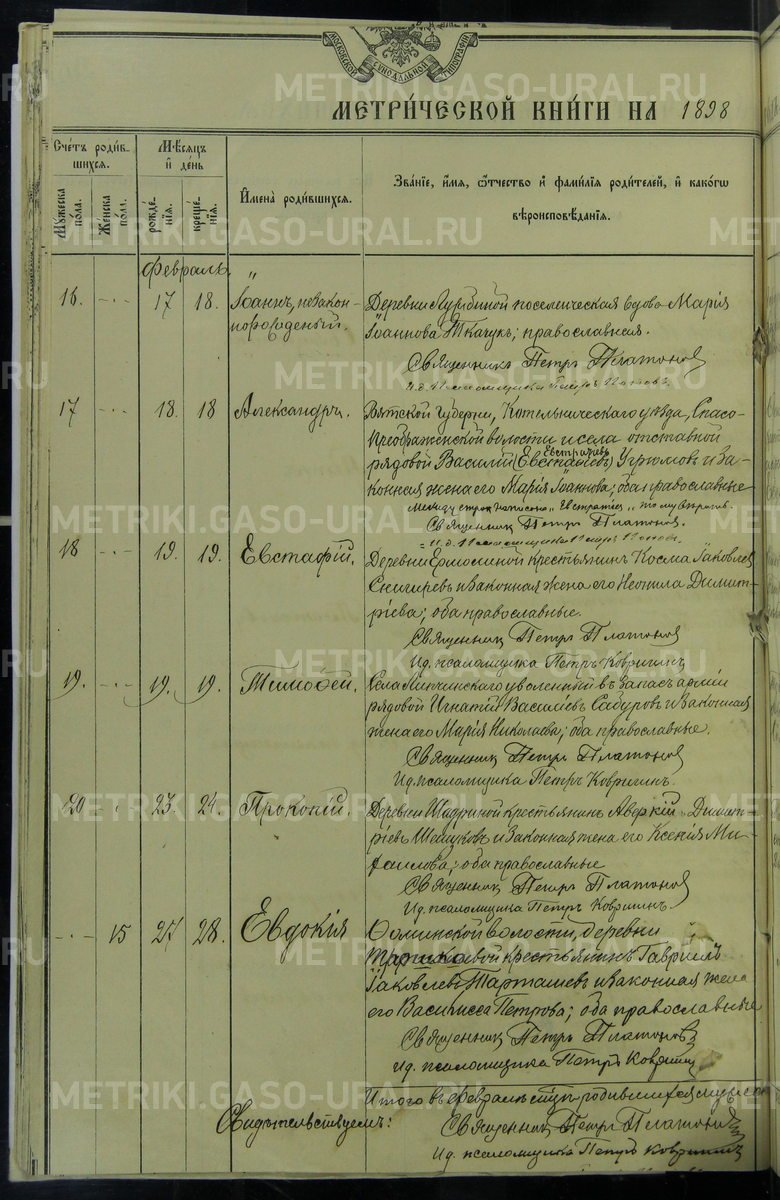 МОСКОВСКОЙ СѴНОДАЛЬНОЙ ТИПОГРАФІИ
МЕТРИ́ЧЕСКОЙ КНИ́ГИ НА 1898
Сче́тъ роди́в-
шихся.
Мꙋ́жеска по́ла.
Же́нска по́ла.
Мѣ́сяцъ
и҆ де́нь
рожде́-
нїя.
креще́-
нїя.
И҆мена̀ роди́вшихся.
Зва́нїе, и҆́мя, ѻ҆́тчество и҆ фами́лїя роди́телей, и҆ како́гѡ
вѣроисповѣ́данїя.
Февраль
16. -"- 17 18. Іоаннъ, незакон-
норожденый.
Деревни поселенческая вдова Марія
Іоаннова Ткачукъ; православная.
Священникъ Петръ Платоновъ
17 -"- 18. 18 Александръ.
Вятской губерніи, Котельническаго уѣзда, Спасо-
Преображенской волости и села отставной
Евстратіевъ
рядовой Василій (Евстафіевъ) Угрюмовъ и за-
конная жена его Марія Іоаннова; оба православные
Между строкъ написано "Евстратіев"
Священникъ Петръ Платоновъ.
18 -"- 19. 19. Евстафій.
Деревни Ермолиной крестьянинъ Косма Іаковлевъ
Снигиревъ и законная жена его Неонила Димит-
ріева; оба православные.
Священникъ Петръ Платоновъ
И.д. псаломщика Петръ Ковригинъ
19. -"- 19. 19. Тимоѳей.
Села Липчинскаго уволенный въ запасъ арміи
рядовой Игнатій Васильевъ Сабуровъ и законная
жена его Марія Николаева; оба православные.
Священникъ Петръ Платоновъ
И.д. псаломщика Петръ Ковригинъ.
20 -"- 23. 24. Прокопій.
Деревни Шадриной крестьянинъ Аверкій Димит-
ріевъ Шешуковъ и законная жена его Ксенія Ми-
хаилова; оба православные
Священникъ Петръ Платоновъ
И.д. псаломщика Петръ Ковригинъ.
-"- 15 27 28. Евдокія
волости, деревни
крестьянинъ Гавріилъ
Іаковлевъ Тарташевъ и законная жена
его Василисса Петрова; оба православные
Священникъ Петръ Платоновъ
И.д. псаломщика Петръ Ковригинъ
Итого въ февралѣ родившихся
Свидѣтельствуемъ:
Священникъ Петръ Платоновъ
И.д. псаломщика Петръ Ковригинъ
METRIKI.GASO-URAL.RU